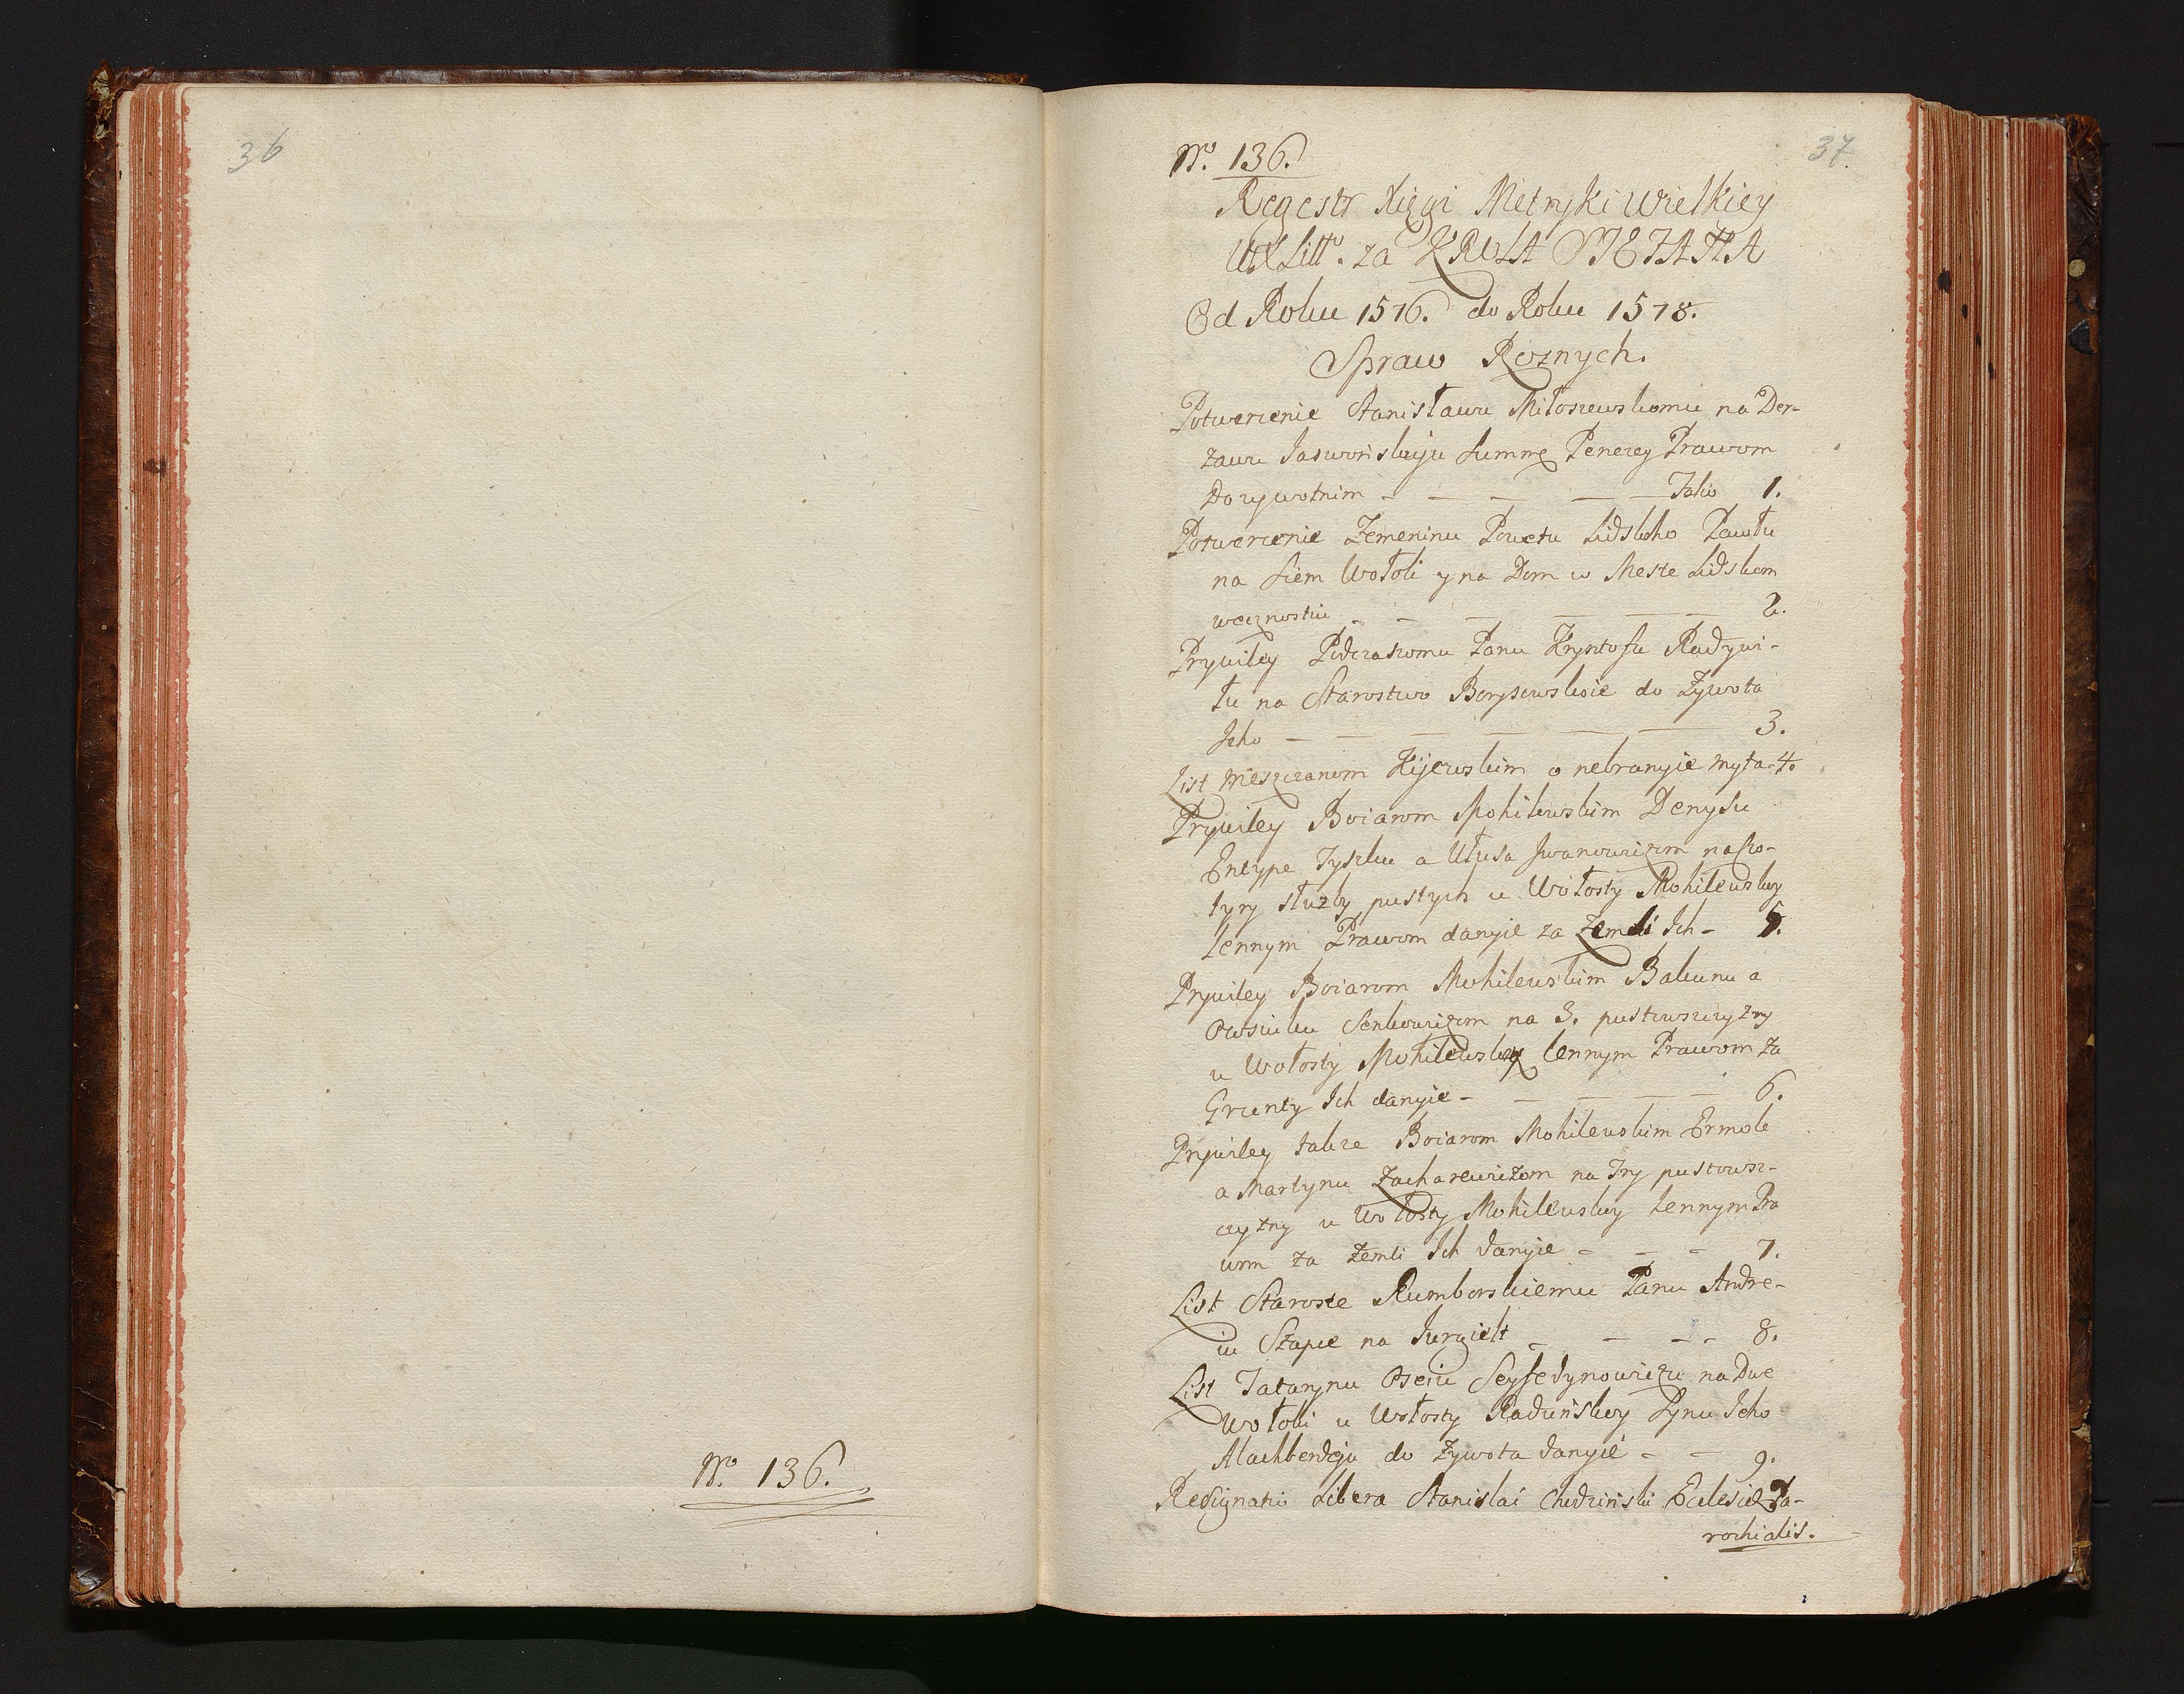 36
Nº. 136.
37.
Nº. 136.
Regestr Xięgi Metryki Wielkiey
WXLittº. za KROLA STEFANA
Od Roku 1576. do Roku 1578.
Spraw Roznych.
Potwerzenie Stanisławu Miłoszewskomu na Der-
zawu Jaswońskuju Summę Penezey Prawom
Dozywotnim - - - - - Folio 1.
Potwerzenie Zemeninu Powetu Lidskoho Pawłu
na Siem Wołok y na Dom w Meste Lidskom
wecznostiu - - - - - - 2.
Prywiley Podczaszomu Panu Krysztofu Radywi-
łu na Starostwo Borysowskoie do Zywota
Jeho - - - - - - 3.
List Mieszczanom Kijewskim o nebranyie myta - 4.
Prywiley Boiarom Mohilewskim Denysu
Entype Tyszku a Własa Iwanowiczom na czo-
tyry służby pustych u Wołosty Mohilewskoy
lennym Prawom danyie za Zemli Ich - 5.
Prywiley Boiarom Mohilewskim Bakunu a
Owsiuku Senkowiczom na 3. pustowszczyzny
u Wołosty Mohilewskoy lennym Prawom za
Grunty Ich danyie - - - - - 6.
Prywiley takze Boiarom Mohilewskim Ermole
a Martynu Zacharewiczom na Try pustowsz-
czyzny u Wołosty Mohilewskoy lennym Pra
wom za Zemli Ich danyie - - - 7.
List Staroste Rumborskiemu Panu Andre-
iu Szapie na Jurgielt - - - - 8.
List Tatarynu Oseiu Seyfedynowiczu na Dwe
Wołoki u Wołosty Raduńskoy Synu Jeho
Alachberdeju do Zywota danyie - - 9.
Resignatio Libera Stanislai Chudziński Eclesiæ Pa-
rochialis.